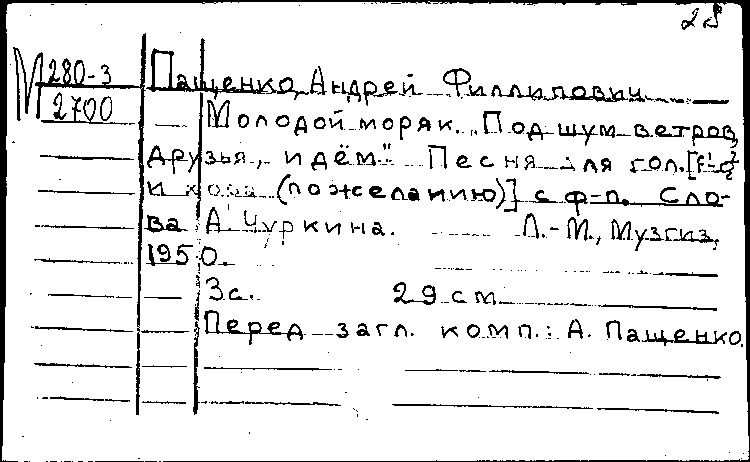 28
М 280-3 Пащенко, Андрей Филлипович
2700 Молодой моряк. „Под шум ветров,
друзья, идём" Песня для гол.
и хора (по желанию)] с ф-п. Сло-
ва А. Чуркина. Л.-М., Музгиз,
1950.
3с. 29 см
Перед загл. комп.: А. Пащенко.